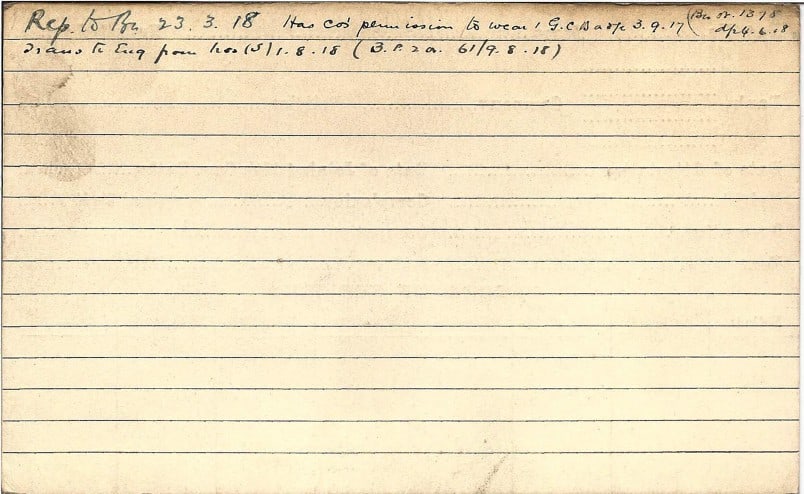 Rep. to Bn 23.3.18 Has co's permission to wear 1 G.C Badge 3.9.17 (Bn or. 1378
d/d 4.6.18
Trans to Eng from hos (S) 1.8.18 (B.P. 2 or. 61/9.8.18)